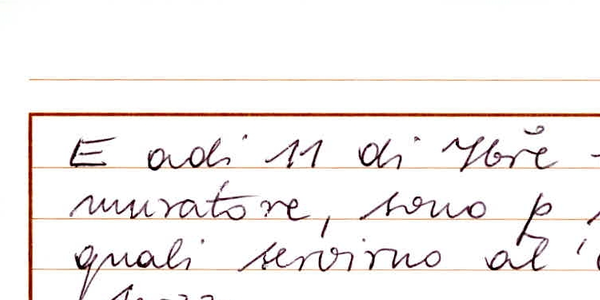 E adi 11 di Xbre -
muratore, sono p
quali servirno al